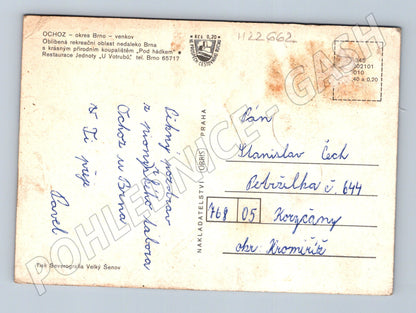 OCHOZ - okres Brno - venkov
Oblíbená rekreační oblast nedaleko Brna
s krásným přírodním koupalištěm „Pod hádkem“
Restaurace Jednoty „U Votrubů“ tel. Brno 65717
Kčs 0,30
H22662
302101
010
40 x 0,20
Pěkný pozdrav
z pionýrského tabora
v
Ochoz u Brna
Ti přeje
Pavel
NAKLADATELSTVÍ ORBIS PRAHA
Pán
Stanislav Čech
Petržilka č. 644
768 05 Koryčany
okr. Kroměříž
Tisk Severografia Velký Šenov
POHLEDNICE - GASH